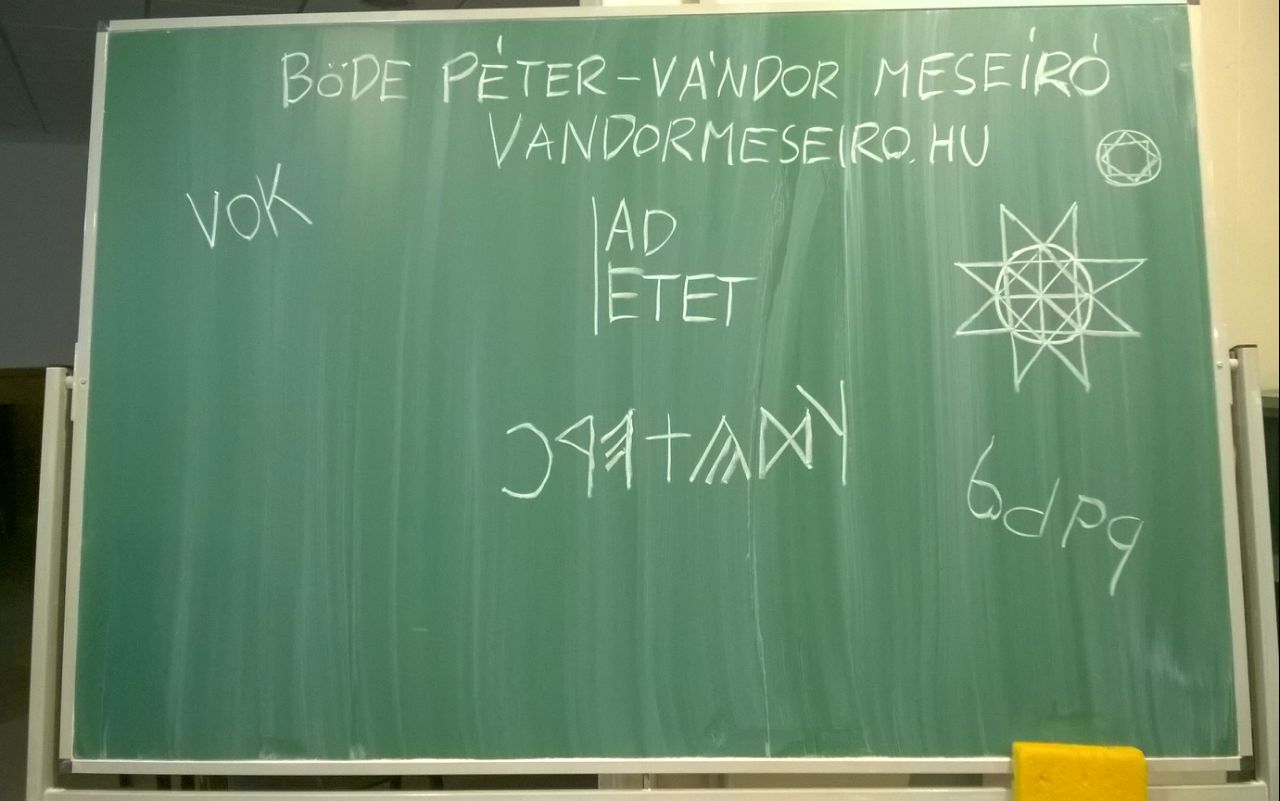 BÖDE PÉTER-VÁNDOR MESEÍRÓ
VANDORMESEIRO.HU
VOK
AD
ETET
bdpq